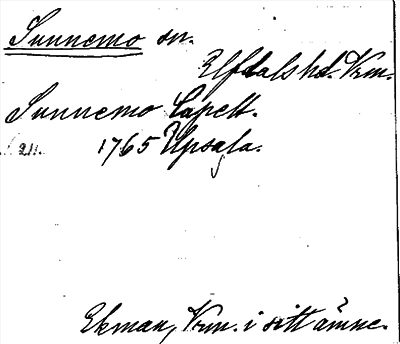 Sunnemo sn.
Elfdals hd. Vrm.
Sunnemo Capell.
1765 Upsala.
Ekman, Vrm. i sitt ämne.